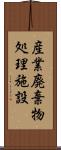 産業廃棄物
処理施設